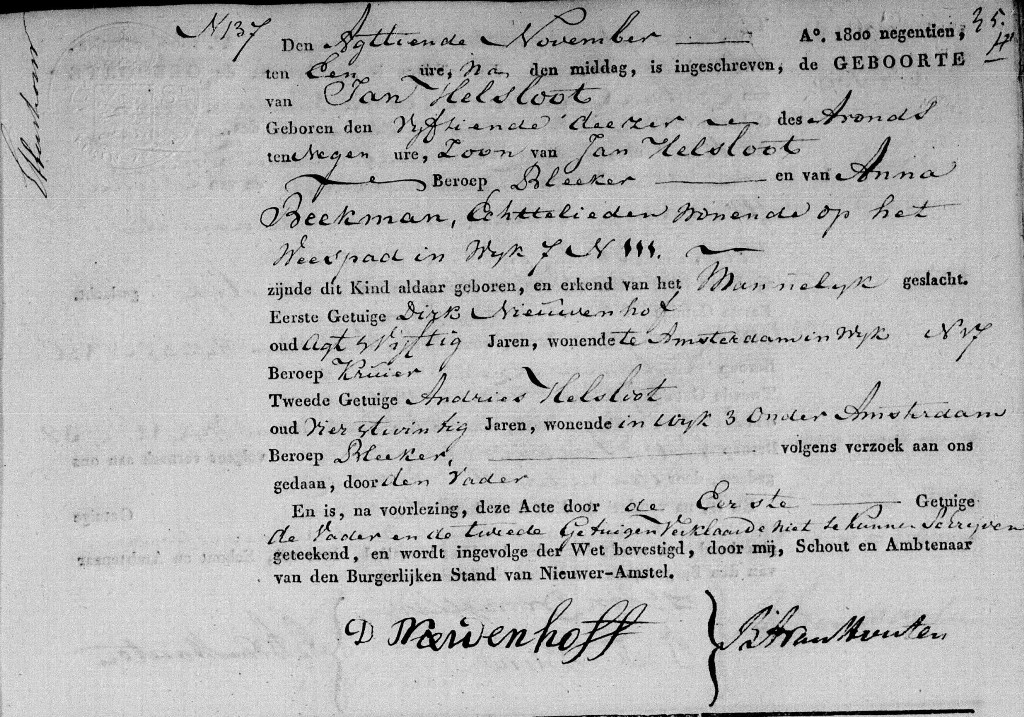 N 137
35.
Den Agttiende November A°. 1800 negentien,
ten Een ure, Na den middag, is ingeschreven, de GEBOORTE
van Jan Helsloot
Geboren den Vyftiende deezer des Avonds
ten Negen ure, Zoon van Jan Helsloot
Beroep Bleeker en van Anna
Beekman, Echttelieden Wonende op het
Weespad in Wyk 7 N 111.
zijnde dit Kind aldaar geboren, en erkend van het Mannelyk geslacht.
Eerste Getuige Dirk Nieuwenhof
oud Agt & Vijftig Jaren, wonende te Amsterdam in Wyk N 17
Beroep Kruier
Tweede Getuige Andries Helsloot
oud Vier & twintig Jaren, wonende in Wyk 3 Onder Amsterdam
Beroep Bleeker, volgens verzoek aan ons
gedaan, door den Vader
En is, na voorlezing, deze Acte door de Eerste Getuige
de Vader en de tweede Getuigen Verklaarde niet te kunnen Schryven
geteekend, en wordt ingevolge der Wet bevestigd, door mij, Schout en Ambtenaar
van den Burgerlijken Stand van Nieuwer-Amstel.
D Niewenhoff